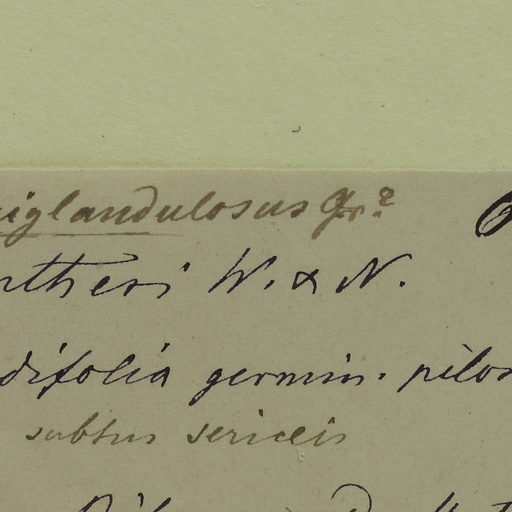 iglandulosus Gr.?
ntheri W. & N.
difolia germin. pilos
subtus sericeis